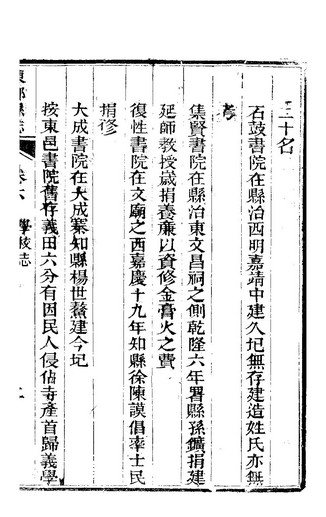 三十名
石鼓書院在縣治西明嘉靖中建久圮無存建造姓氏亦無
考
集賢書院在縣治東文昌祠之側乾隆六年署縣孫鑛捐建
延師教授歲捐養廉以資修金膏火之費
復性書院在文廟之西嘉慶十九年知縣徐陳謨倡率士民
捐修
大成書院在大成寨知縣楊世鰲建今圮
按東邑書院舊存義田六分有因民人侵佔寺產首歸義學
卷六 學校志